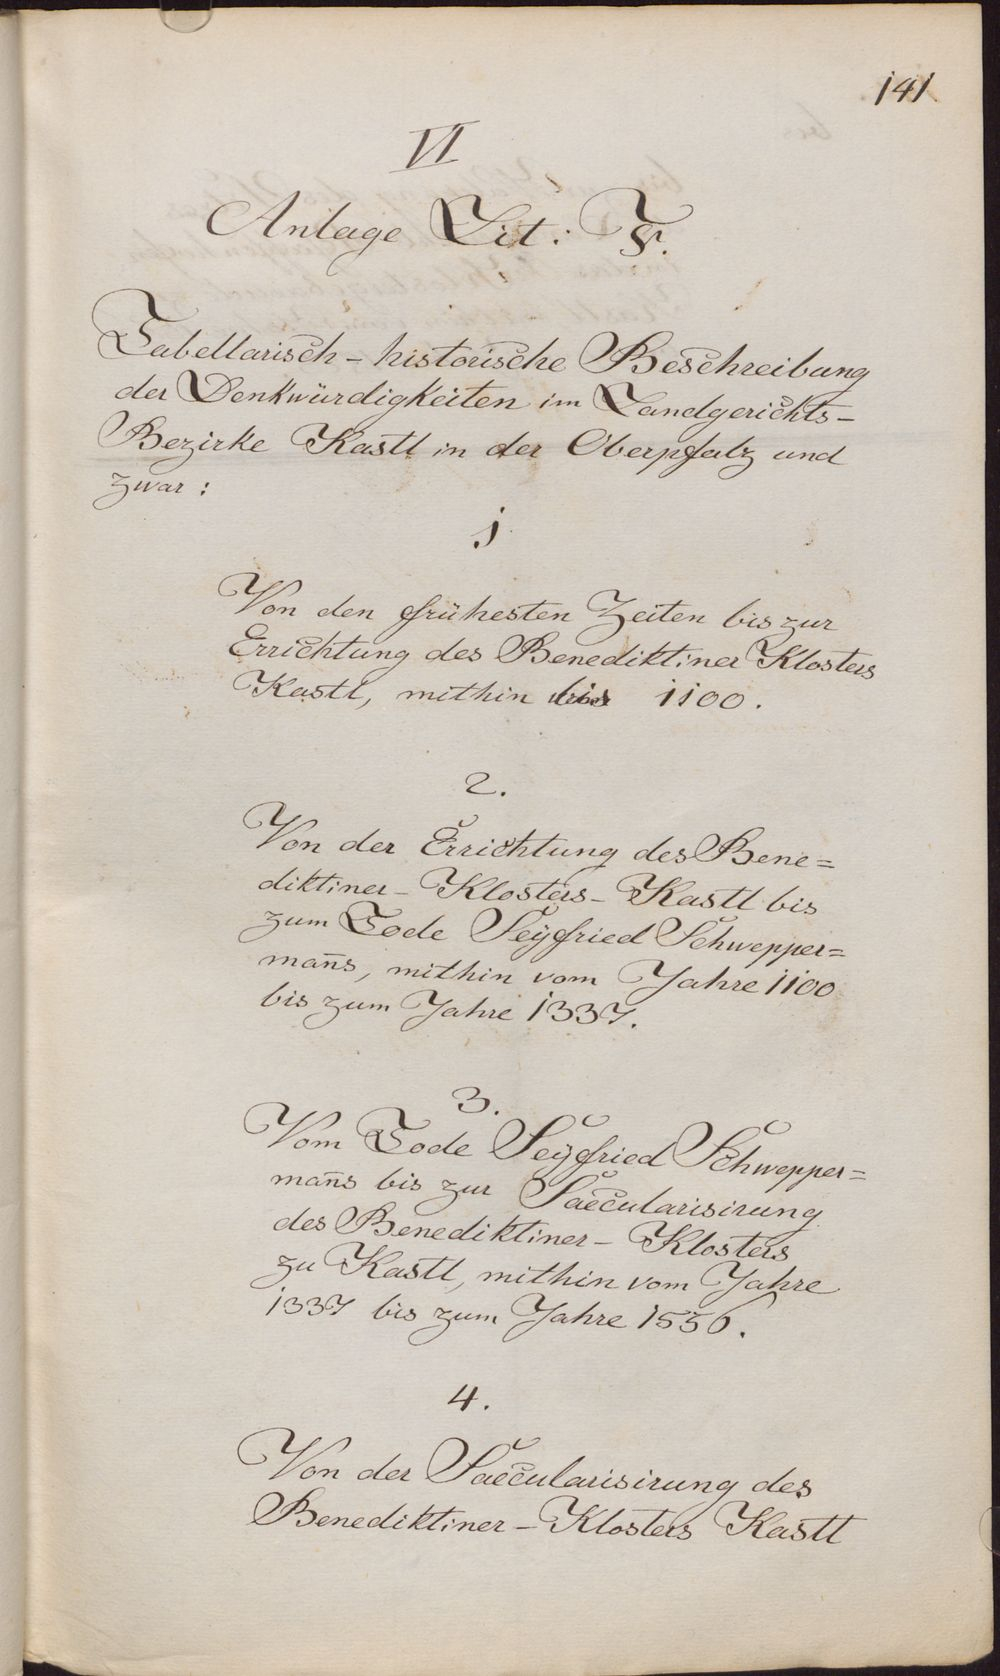 141
VI
Anlage Lit: F.
Tabellarisch - historische Beschreibung
der Denkwürdigkeiten im Landgerichts-
Bezirke Kastl in der Oberpfalz und
zwar:
1
Von den frühesten Zeiten bis zur
Errichtung des Benediktiner Klosters
Kastl, mithin bis 1100.
2.
Von der Errichtung des Bene=
diktiner - Klosters - Kastl bis
zum Tode Seÿfried Schwepper=
mañs, mithin vom Jahre 1100
bis zum Jahre 1337.
3.
Vom Tode Seÿfried Schwepper=
mañs bis zur Saecularisirung
des Benediktiner - Klosters
zu Kastl, mithin vom Jahre
1337 bis zum Jahre 1556.
4.
Von der Saecularisirung des
Benediktiner - Klosters Kastl